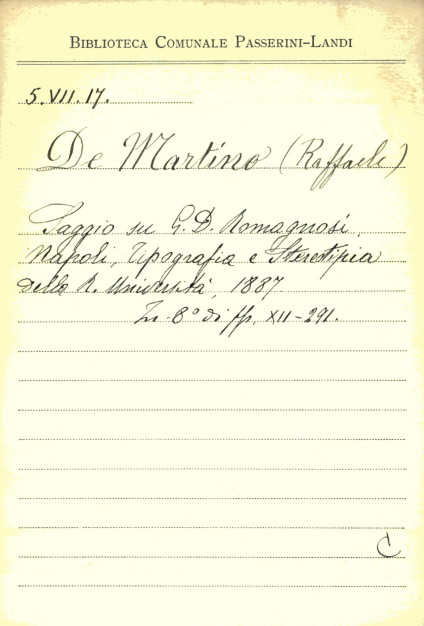 BIBLIOTECA COMUNALE PASSERINI-LANDI
5.VII.17.
De Martino (Raffaele)
Saggio su G. D. Romagnosi,
Napoli, Tipografia e Stereotipia
della R. Università, 1887.
In-8° di pp. XII-291.
C